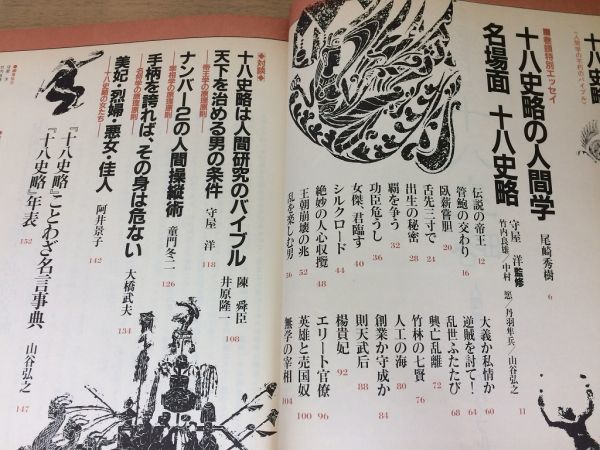 ■巻頭特別エッセイ
十八史略の人間学
尾崎秀樹
6
名場面 十八史略
守屋 洋監修
竹内良雄/中村 愿/丹羽隼兵/山谷弘之
11
伝説の帝王
12
管鮑の交わり
16
臥薪嘗胆
20
舌先三寸で
24
出生の秘密
28
覇を争う
32
功臣危うし
36
女傑、君臨す
40
シルクロード
44
絶妙の人心収攬
48
王朝崩壊の兆
52
乱を楽しむ男
56
大義か私情か
60
逆賊を討て!
64
乱世ふたたび
68
興亡乱離
72
竹林の七賢
76
人工の海
80
創業か守成か
84
則天武后
88
楊貴妃
92
エリート官僚
96
英雄と売国奴
100
無学の宰相
104
◆対談◆
十八史略は人間研究のバイブル
陳 舜臣
井原隆一
108
天下を治める男の条件
─帝王学の原理原則─
守屋 洋
118
ナンバー2の人間操縦術
─宰相学の原理原則─
童門冬二
126
手柄を誇れば、その身は危ない
大橋武夫
134
美妃・烈婦・悪女・佳人
─十八史略の女たち─
阿井景子
142
『十八史略』ことわざ名言事典
山谷弘之
147
『十八史略』年表
152